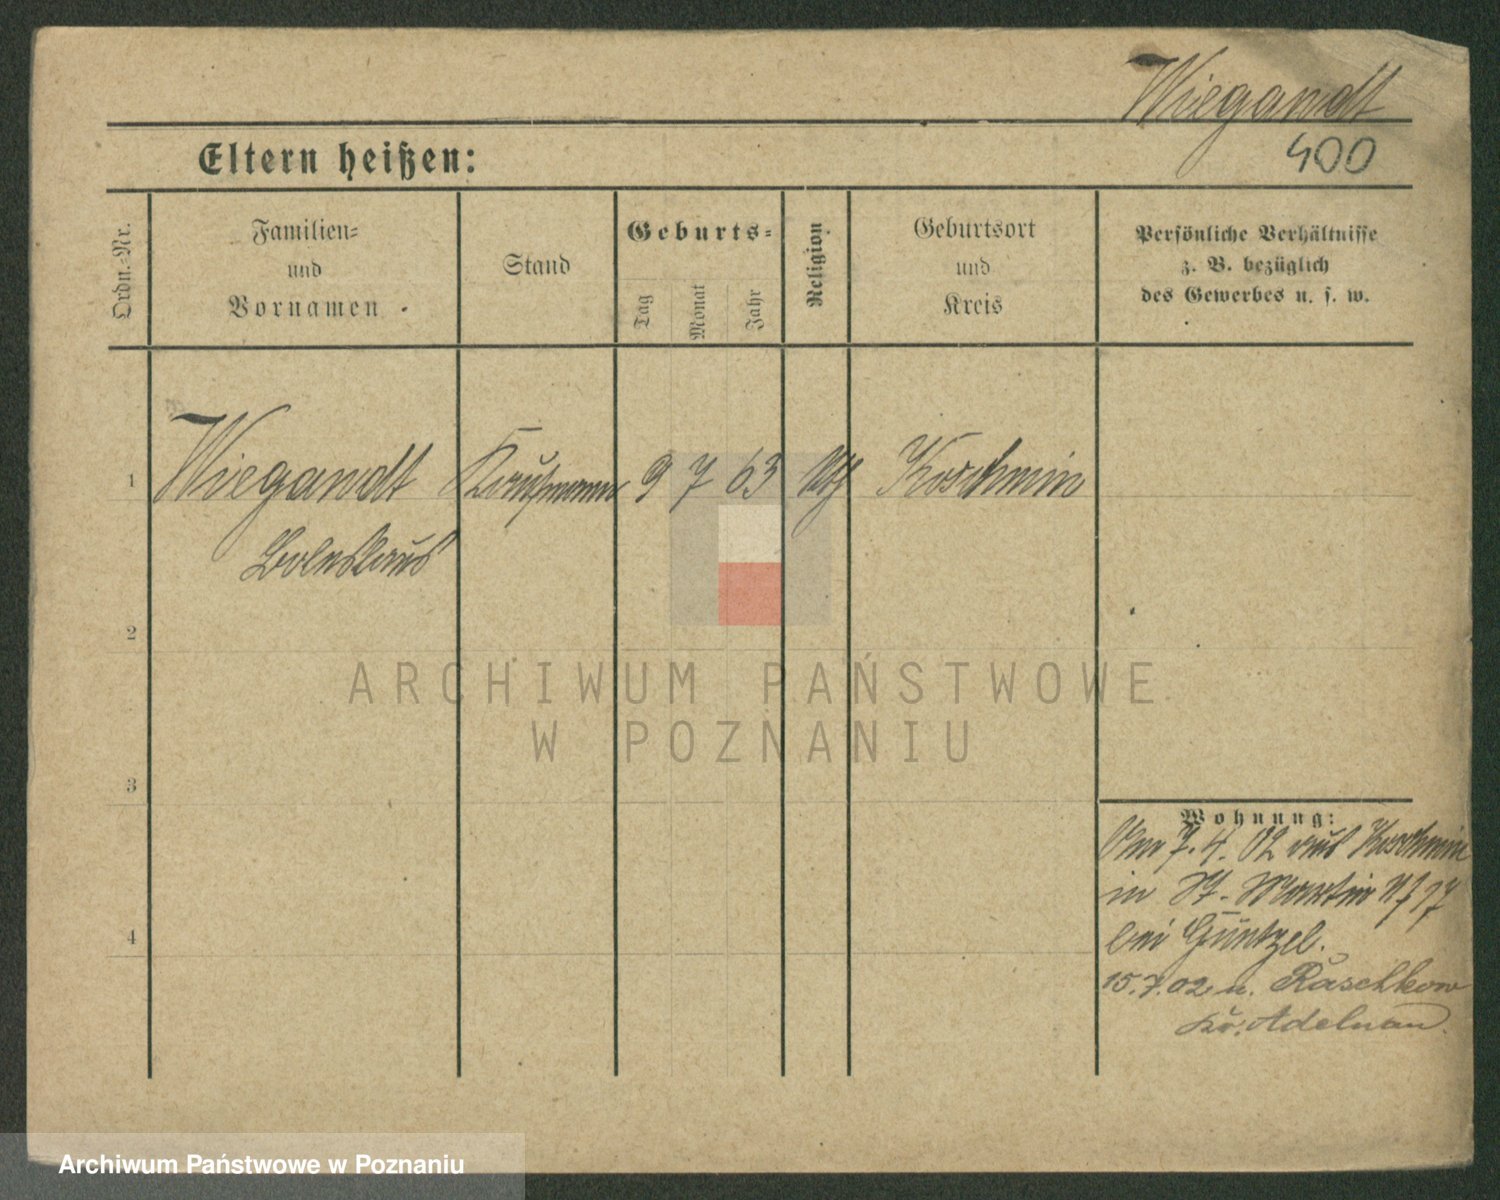 Wiegandt
400
Eltern heißen:
Ordn.-Nr.
Familien-
und
Vornamen
Stand
Geburts-
Tag
Monat
Jahr
Religion
Geburtsort
und
Kreis
Persönliche Verhältnisse
z. B. bezüglich
des Gewerbes u. s. w.
1 Wiegandt Kaufmann 9 7 63 Koschmin
Boleslaus
2
ARCHIWUM PAŃSTWOWE
W POZNANIU
3
Wohnung:
7. 4. 02 aus Koschmin
in St. Martin 17
bei Güntzel.
4
15.7.02 n. Raschkow
Kr. Adelnau.
Archiwum Państwowe w Poznaniu